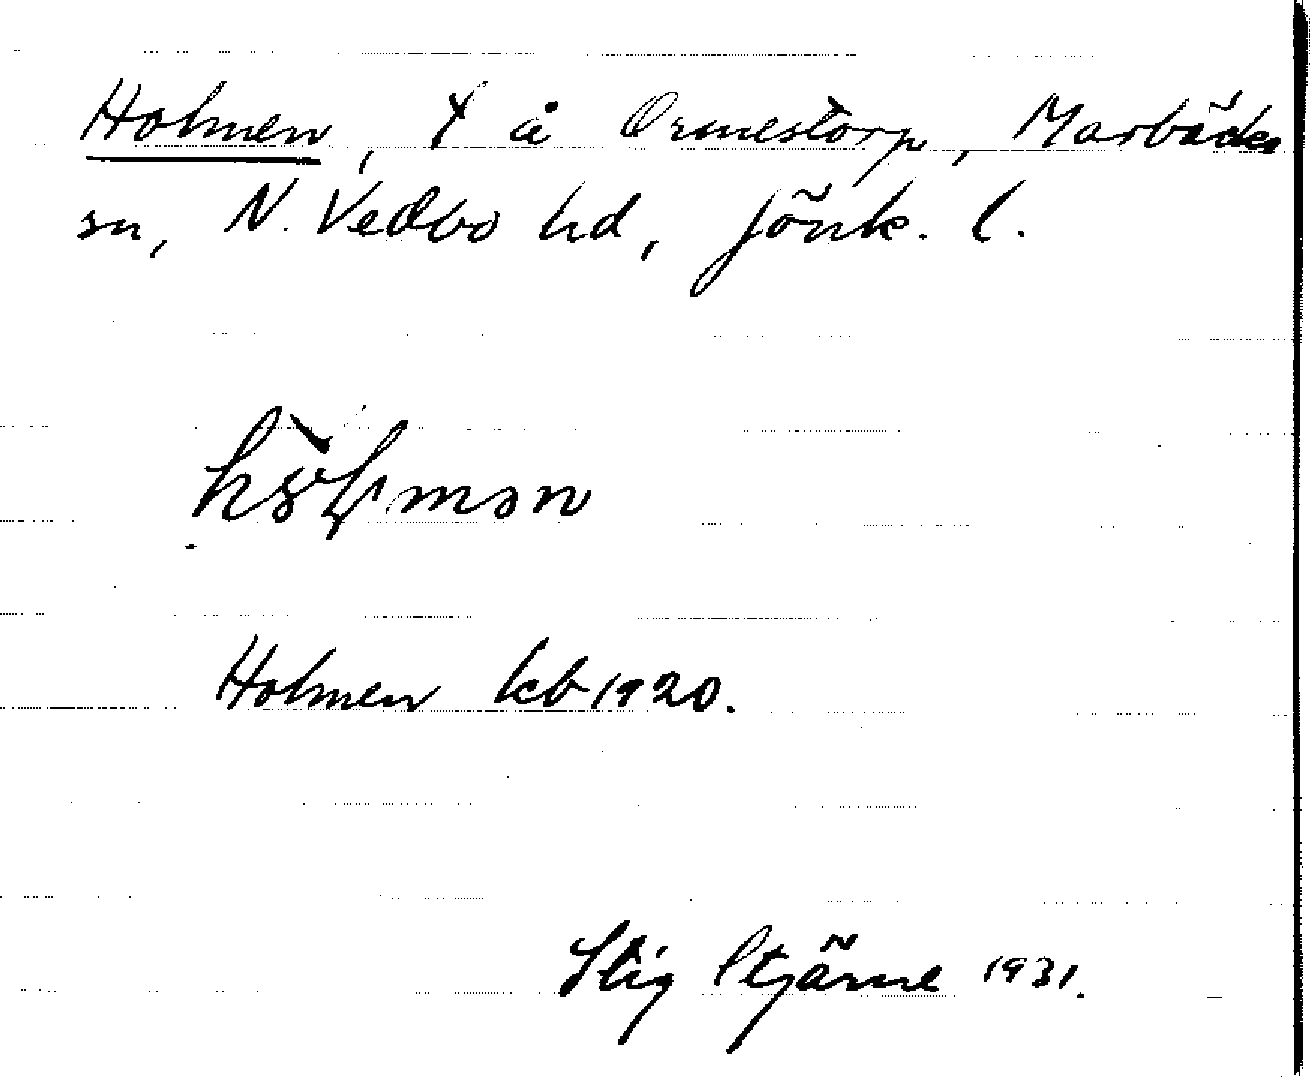 Holmen, t å Ormestorp, Marbäcks
sn, N. Vedbo hd, Jönk. l.
Holmen kb 1920.
Stig Stjärne 1931.